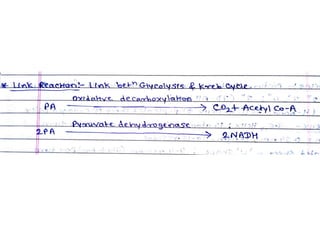 * Link Reaction:- Link betn Glycolysis & Kreb Cycle.
oxidative decarboxylation
PA → CO2 + Acetyl Co-A
Pyruvate dehydrogenase
2PA → 2NADH